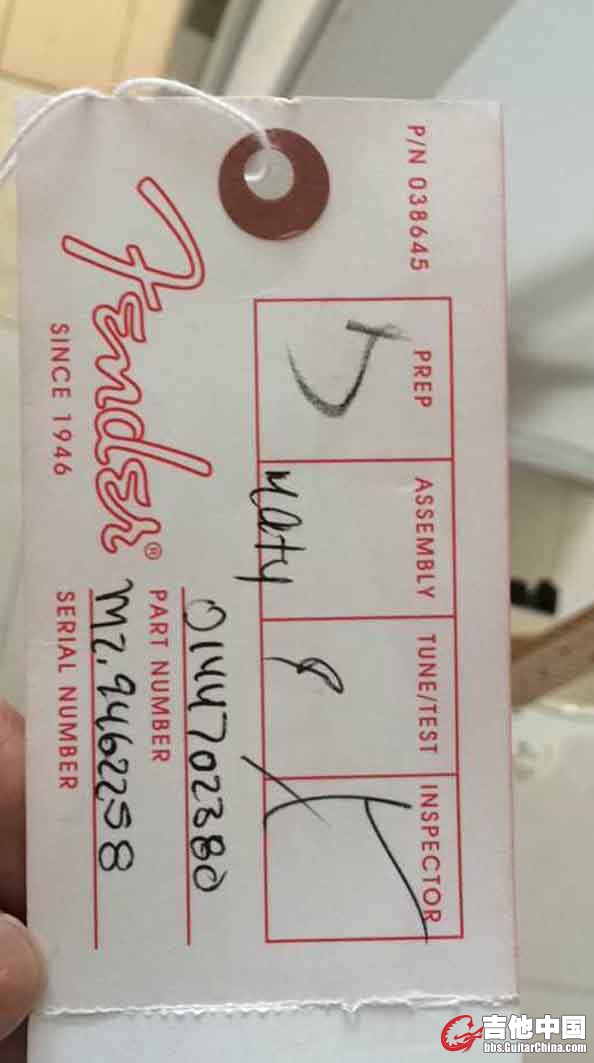 P/N 038645
PREP ASSEMBLY TUNE/TEST INSPECTOR
Maty
Fender®
SINCE 1946
0144702380
PART NUMBER
MZ.9462258
SERIAL NUMBER
吉他中国
bbs.GuitarChina.com